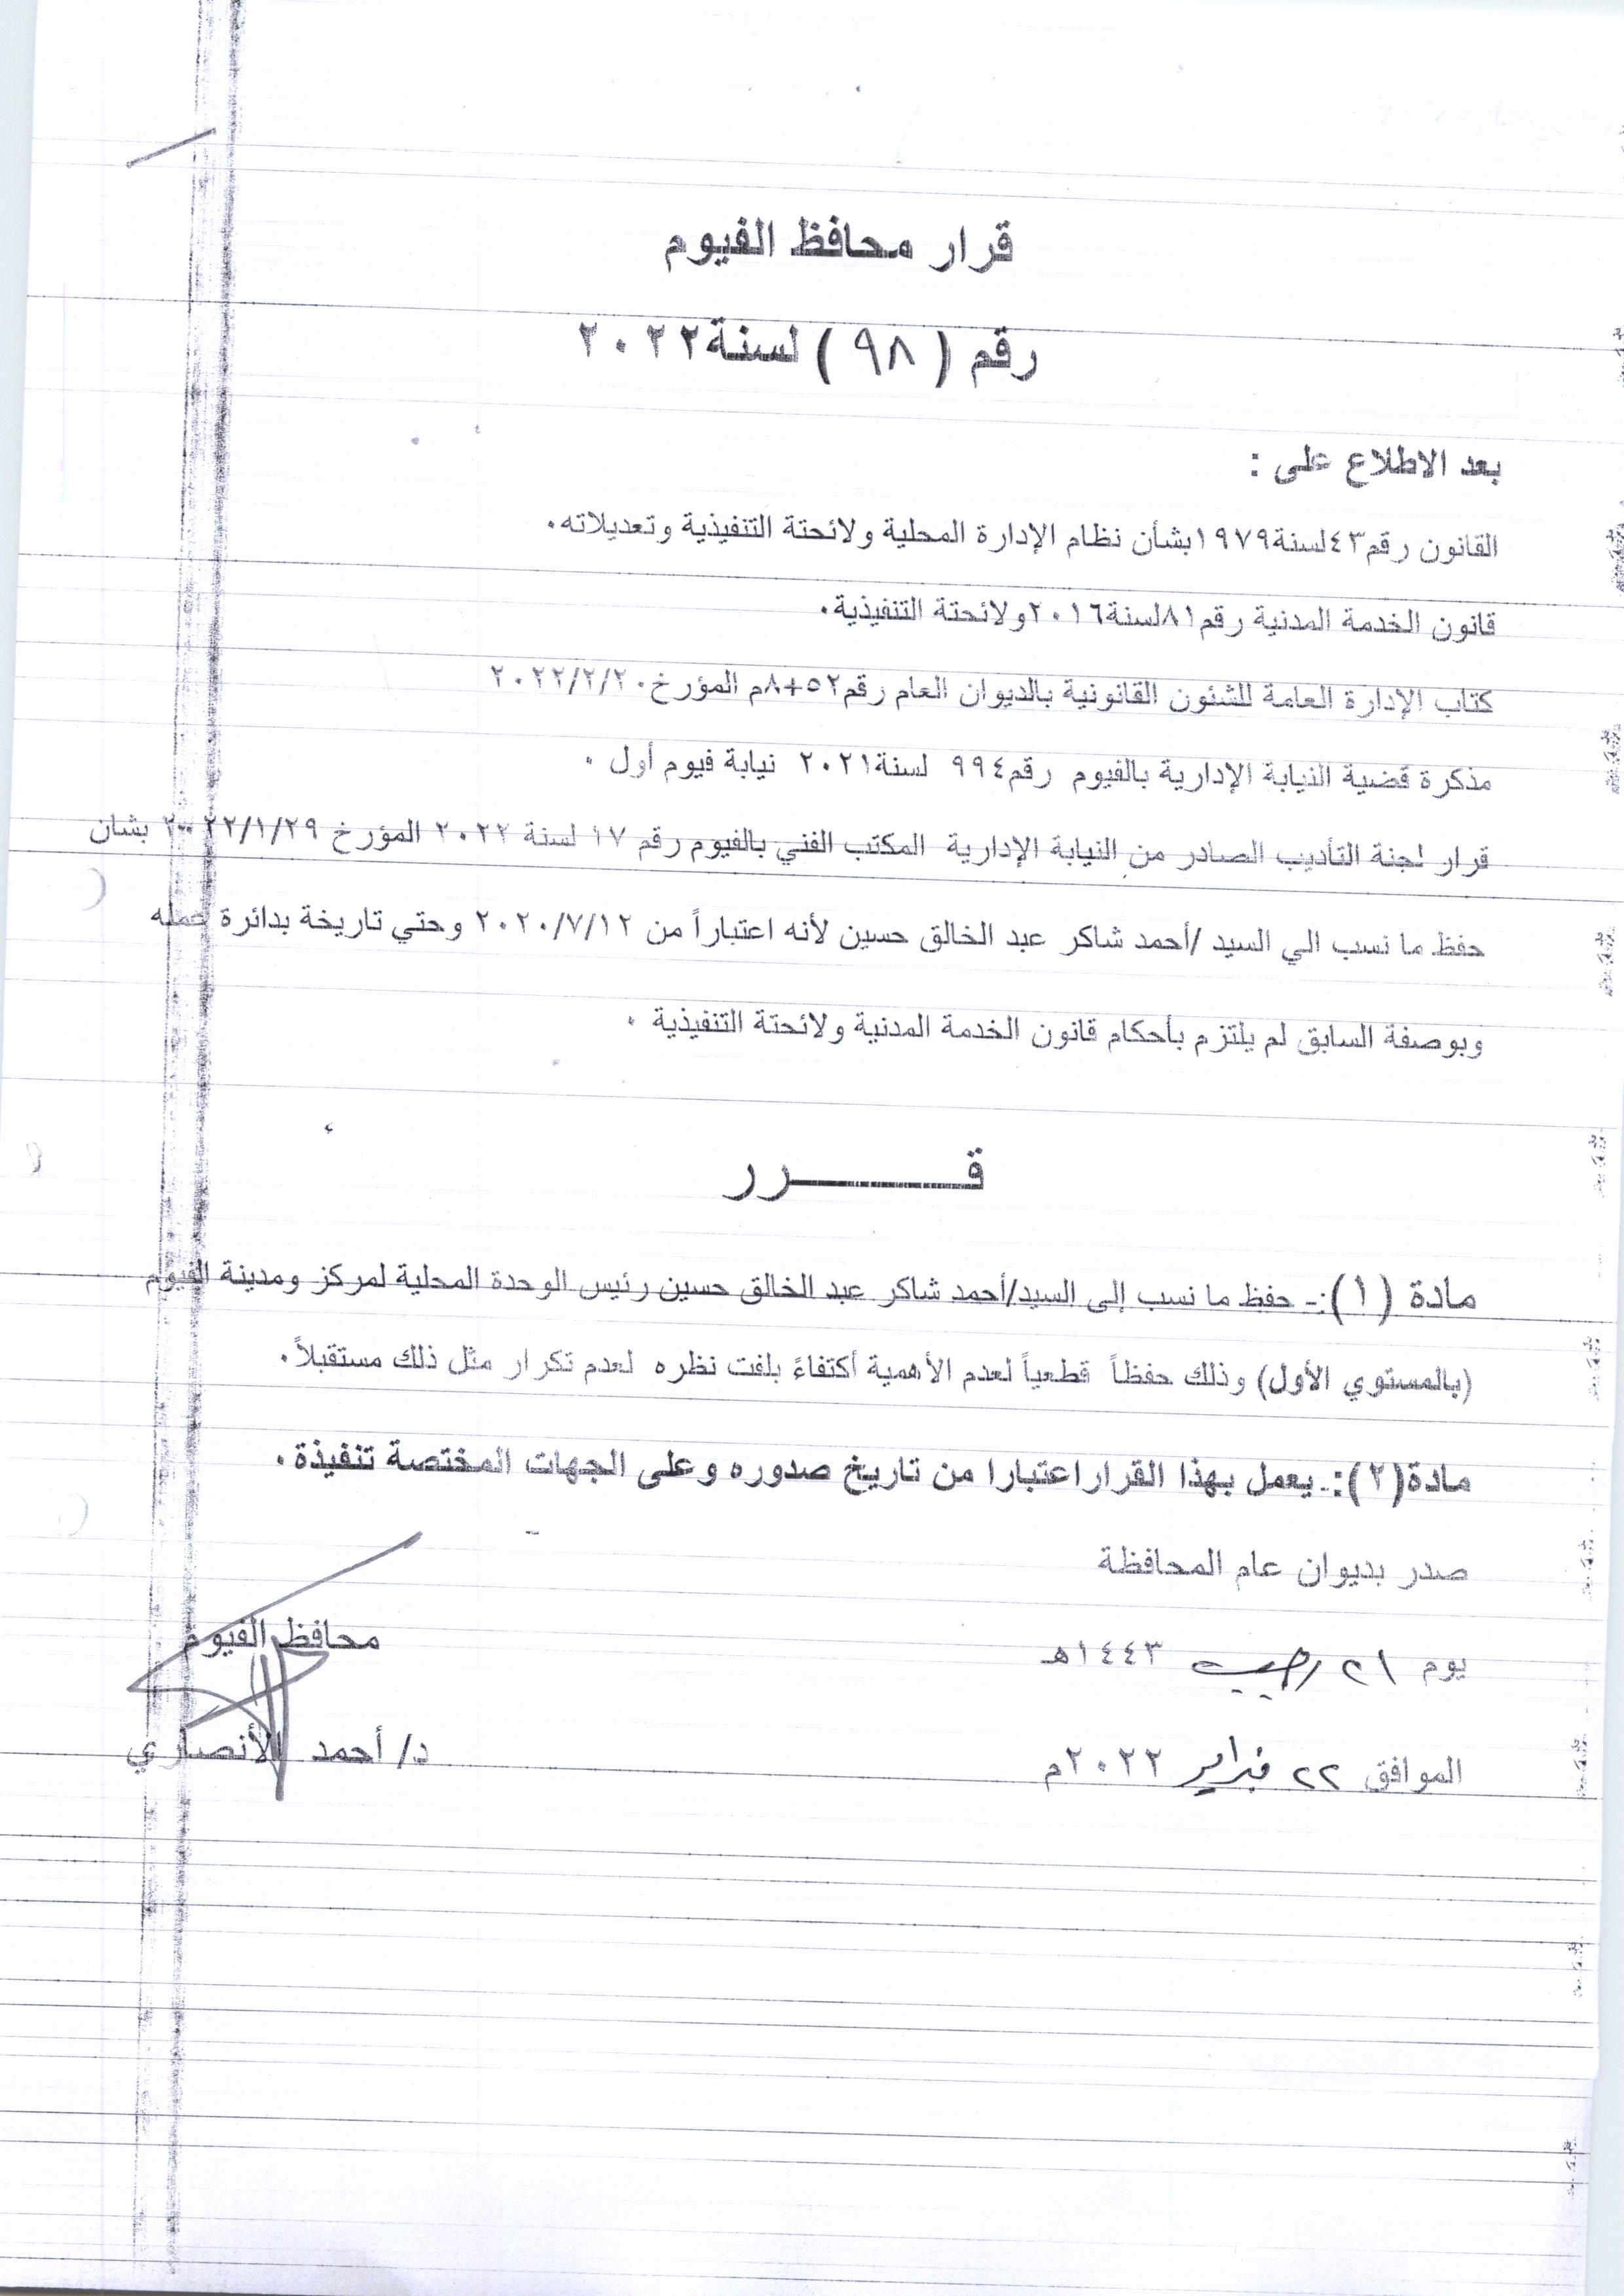 قرار محافظ الفيوم
رقم ( ٩٨ ) لسنة٢٠٢٢
بعد الاطلاع على :
القانون رقم٤٣لسنة١٩٧٩بشأن نظام الإدارة المحلية ولائحتة التنفيذية وتعديلاته.
قانون الخدمة المدنية رقم٨١لسنة٢٠١٦ولائحتة التنفيذية.
كتاب الإدارة العامة للشئون القانونية بالديوان العام رقم٥٢+٨م المؤرخ٢٠٢٢/٢/٢٠
مذكرة قضية النيابة الإدارية بالفيوم رقم٩٩٤ لسنة٢٠٢١ نيابة فيوم أول .
قرار لجنة التأديب الصادر من النيابة الإدارية المكتب الفني بالفيوم رقم ١٧ لسنة ٢٠٢٢ المؤرخ ٢٠٢٢/١/٢٩ بشان
حفظ ما نسب الي السيد /أحمد شاكر عبد الخالق حسين لأنه اعتباراً من ٢٠٢٠/٧/١٢ وحتي تاريخة بدائرة عمله
وبوصفة السابق لم يلتزم بأحكام قانون الخدمة المدنية ولائحتة التنفيذية .
قـــــــرر
مادة (١):- حفظ ما نسب إلى السيد/أحمد شاكر عبد الخالق حسين رئيس الوحدة المحلية لمركز ومدينة الفيوم
(بالمستوي الأول) وذلك حفظاً قطعياً لعدم الأهمية أكتفاءً بلفت نظره لعدم تكرار مثل ذلك مستقبلاً.
مادة(٢):- يعمل بهذا القراراعتبارا من تاريخ صدوره وعلى الجهات المختصة تنفيذة.
صدر بديوان عام المحافظة
يوم ٢١ رجب ١٤٤٣هـ
محافظ الفيوم
الموافق ٢٢ فبراير ٢٠٢٢م
د/ أحمد الأنصاري